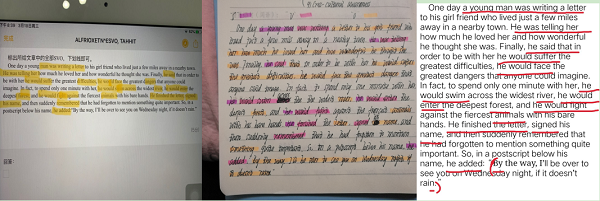 标出所给文章中的全部SVO, 下划线即可。
One day a young man was writing a letter to his girl friend who lived just a few miles away in a nearby town.
He was telling her how much he loved her and how wonderful he thought she was. Finally, he said that in
order to be with her he would suffer the greatest difficulties, he would face the greatest dangers that anyone could
imagine. In fact, to spend only one minute with her, he would swim across the widest river, he would enter the
deepest forest, and he would fight against the fiercest animals with his bare hands. He finished the letter, signed
his name, and then suddenly remembered that he had forgotten to mention something quite important. So, in a
postscript below his name, he added: "By the way, I'll be over to see you on Wednesday night, if it doesn't rain."
One day a young man was writing a letter to his girl friend who
lived just a few miles away in a nearby town. He was telling her
how much he loved her and how wonderful he thought she
was. Finally, he said that in order to be with her he would suffer
the greatest difficulties, he would face the greatest dangers that
anyone could imagine. In fact, to spend only one minute with her,
he would swim across the widest river, he would enter the
deepest forest, and he would fight against the fiercest animals
with his bare hands. He finished the letter, signed his name,
and then suddenly remembered that he had forgotten to mention
something quite important. So, in a postscript below his name, he
added: "By the way, I'll be over to see you on Wednesday night, if
it doesn't rain."
One day a young man was writing a letter
to his girl friend who lived just a few miles
away in a nearby town. He was telling her
how much he loved her and how wonderful
he thought she was. Finally, he said that in
order to be with her he would suffer the
greatest difficulties, he would face the
greatest dangers that anyone could imagine.
In fact, to spend only one minute with her, he
would swim across the widest river, he would
enter the deepest forest, and he would fight
against the fiercest animals with his bare
hands. He finished the letter, signed his
name, and then suddenly remembered that
he had forgotten to mention something quite
important. So, in a postscript below his
name, he added: "By the way, I'll be over to
see you on Wednesday night, if it doesn't
rain."